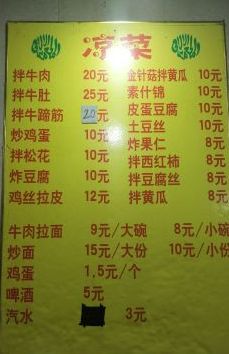 凉菜
拌牛肉 20元 金针菇拌黄瓜 10元
拌牛肚 25元 素什锦 10元
拌牛蹄筋 20元 皮蛋豆腐 10元
炒鸡蛋 10元 土豆丝 10元
拌松花 10元 炸果仁 8元
炸豆腐 10元 拌西红柿 8元
鸡丝拉皮 12元 拌豆腐丝 8元
拌黄瓜 8元
牛肉拉面 9元/大碗 8元/小碗
炒面 15元/大份 10元/小份
鸡蛋 1.5元/个
啤酒 5元
汽水 3元